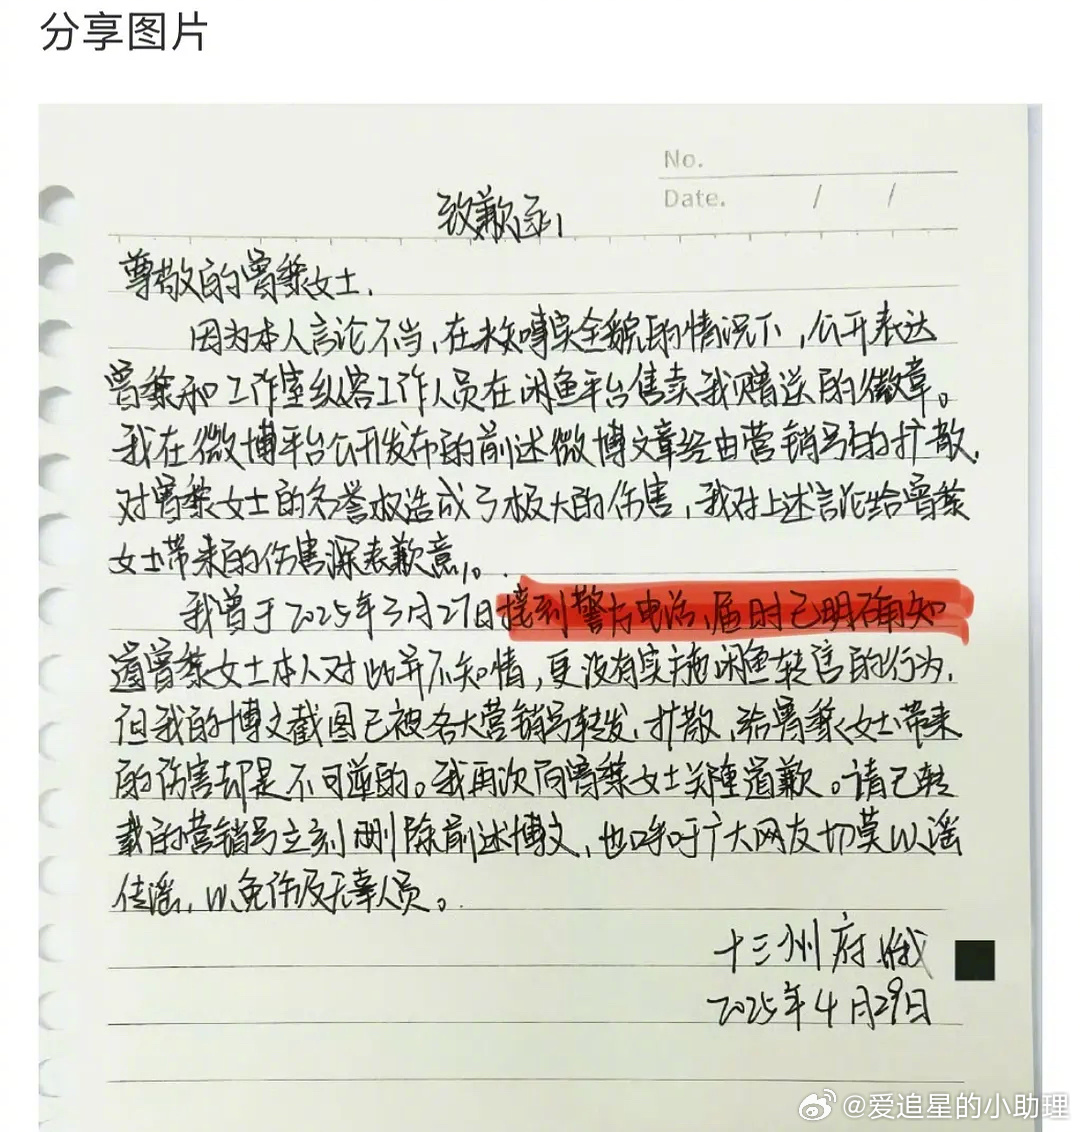 分享图片
No.
Date. / /
致歉函
尊敬的曾黎女士,
因为本人言论不当,在未知事实全貌的情况下,公开表达
曾黎和工作室纵容工作人员在闲鱼平台售卖我赠送的徽章。
我在微博平台公开发布的前述微博文章经由营销号的扩散,
对曾黎女士的名誉权造成了极大的伤害,我对上述言论给曾黎
女士带来的伤害深表歉意。
我曾于2025年3月27日接到警方电话,届时已明确知
道曾黎女士本人对此并不知情,更没有实施闲鱼转售的行为,
但我的博文截图已被各大营销号转发、扩散,给曾黎女士带来
的伤害却是不可逆的。我再次向曾黎女士郑重道歉。请已转
载的营销号立刻删除前述博文,也呼吁广大网友切莫以谣
传谣,以免伤及无辜人员。
十三州府
2025年4月29日
@爱追星的小助理